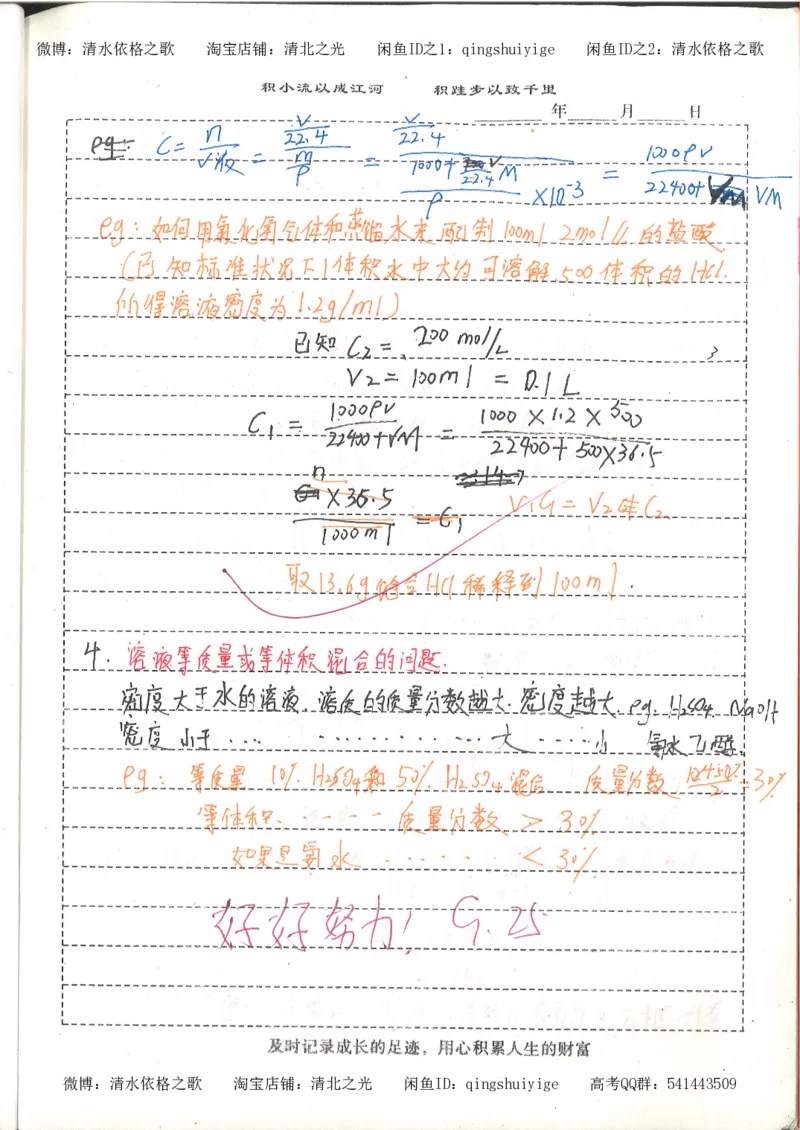 微博：清水依格之歌 淘宝店铺：清北之光 闲鱼ID之1：qingshuiyige 闲鱼ID之2：清水依格之歌
积小流以成江河 积跬步以致千里
年 月 日
C = n/V液 = (V/22.4)/(m/ρ) = (V/22.4)/((1000+V/22.4 M)/ρ ×10⁻³) = 1000ρV/(22400+VM)
eg：如何用氯化氢气体和蒸馏水来配制100ml 2mol/L的盐酸
（已知标准状况下1体积水中大约可溶解500体积的HCl.
所得溶液密度为1.2g/ml）
已知 C₂ = 2.00 mol/L
V₂ = 100ml = 0.1L
C₁ = 1000ρV/(22400+VM) = (1000×1.2×500)/(22400+500×36.5)
n×36.5/1000ml = C₁ V₁C₁ = V₂C₂
取13.6g饱合HCl稀释到100ml.
4. 溶液等质量或等体积混合的问题.
密度大于水的溶液.溶质的质量分数越大.密度越大.eg.H₂SO₄.NaOH
密度小于… …………大……小 氨水 乙醇.
eg：等质量 10% H₂SO₄和50% H₂SO₄混合 质量分数 (10+50)%/2=30%
等体积、…… 质量分数 > 30%
如果是氨水…… < 30%.
好好努力! 9.25
及时记录成长的足迹，用心积累人生的财富
微博：清水依格之歌 淘宝店铺：清北之光 闲鱼ID：qingshuiyige 高考QQ群：541443509